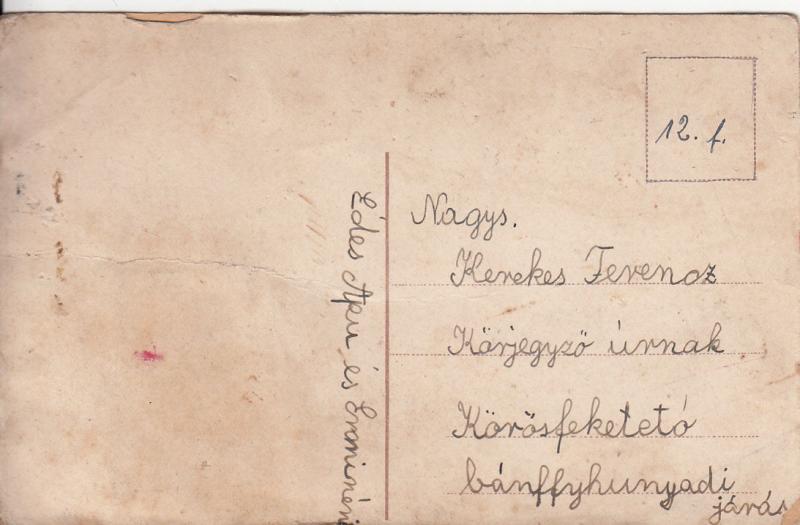 12. f.
Nagys.
Kerekes Ferencz
Körjegyző úrnak
Körösfeketetó
bánffyhunyadi
járás
Édes Apu és Erminéni